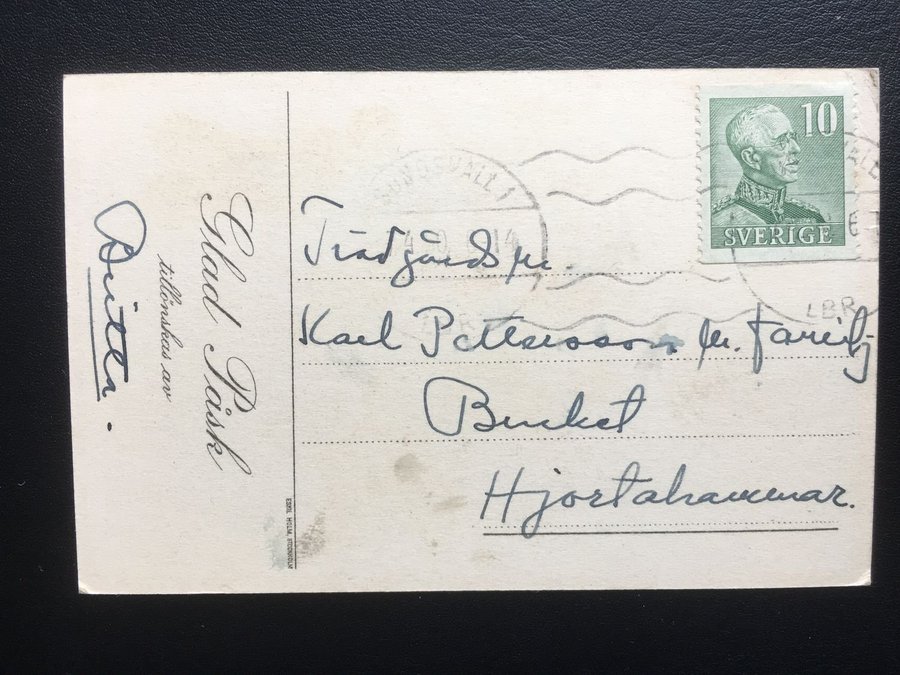 Glad Påsk
tillönskas av
Britta.
ESKIL HOLM, STOCKHOLM
SUNDSVALL 1
LBR
10
SVERIGE
Trädgårdsm.
Karl Pettersson m. familj
Hjortahammar.